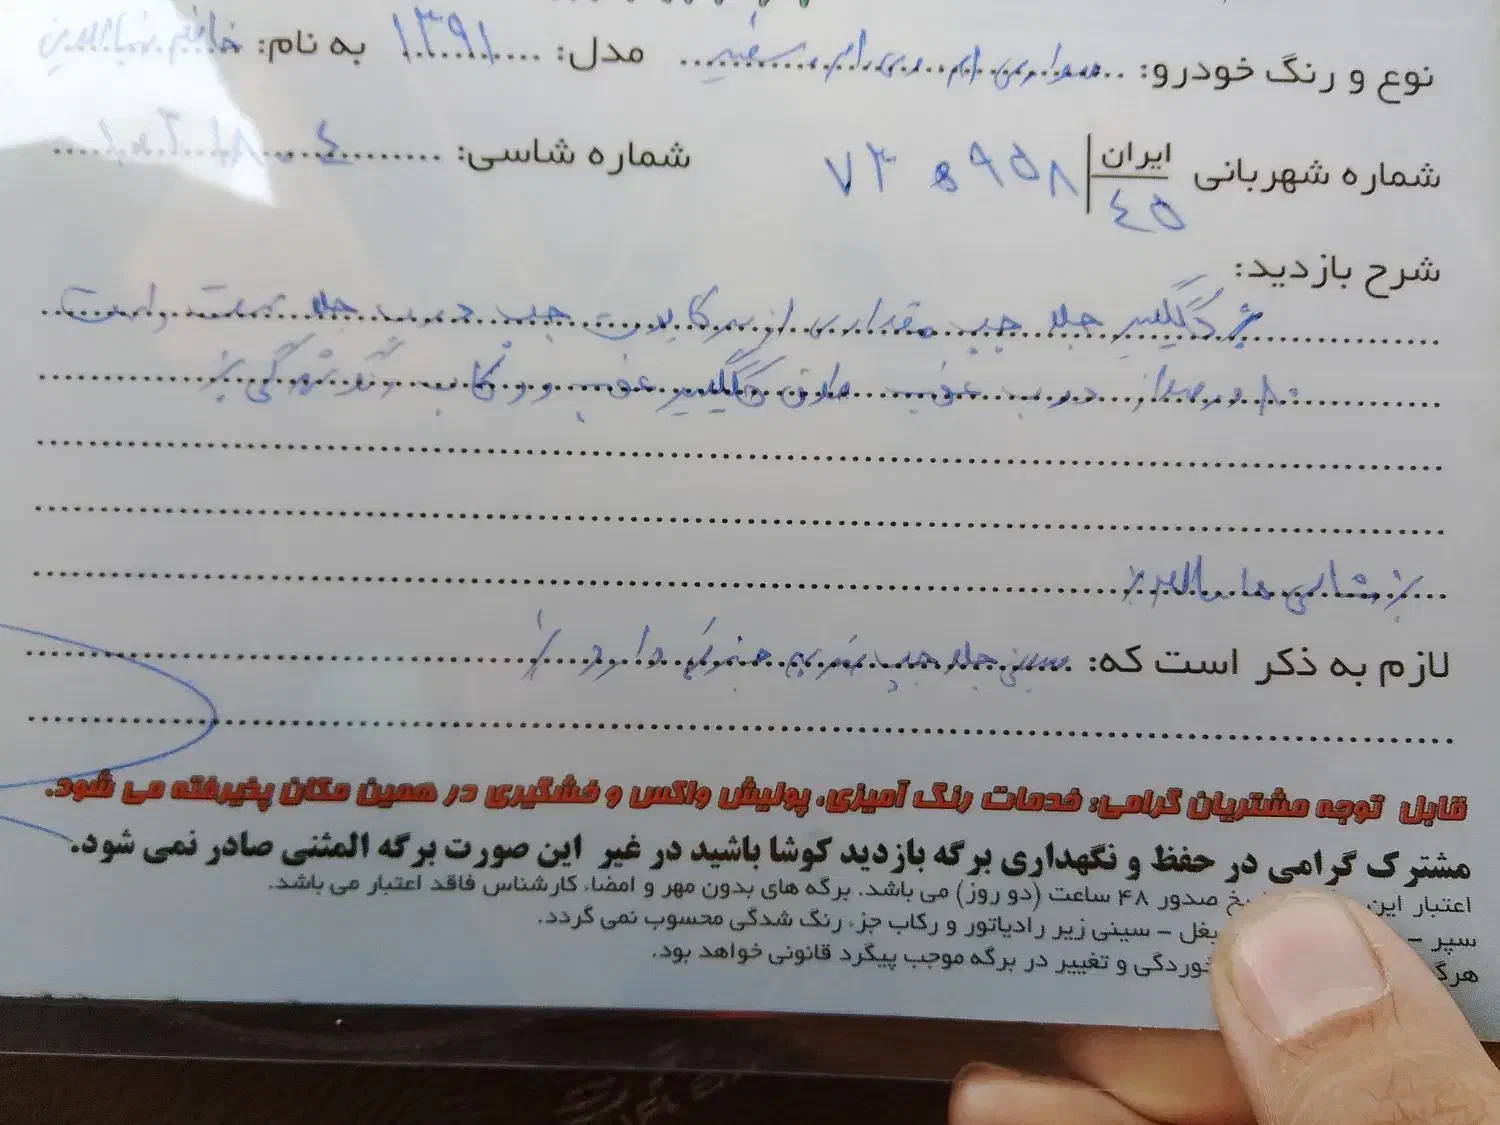 نوع و رنگ خودرو: سواری ام وی ام سفید مدل: ۱۳۹۱ به نام: خانم
شماره شهربانی ایران ۴۵ ۷۳ ۹۵۸ شماره شاسی:
شرح بازدید:
گلگیر جلو چپ مقداری از سر کاپوت چپ درب جلو سمت راست
۸۰ درصد از درب عقب ستون گلگیر عقب و رکاب رنگ شدگی
شاسی ها سالم
لازم به ذکر است که: سینی جلو چپ ضربه جزئی دارد
قابل توجه مشتریان گرامی: خدمات رنگ آمیزی، پولیش واکس و خشگیری در همین مکان پذیرفته می شود.
مشترک گرامی در حفظ و نگهداری برگه بازدید کوشا باشید در غیر این صورت برگه المثنی صادر نمی شود.
اعتبار این صدور ۴۸ ساعت (دو روز) می باشد. برگه های بدون مهر و امضا، کارشناس فاقد اعتبار می باشد.
سپر – بغل – سینی زیر رادیاتور و رکاب جز، رنگ شدگی محسوب نمی گردد.
خوردگی و تغییر در برگه موجب پیگرد قانونی خواهد بود.